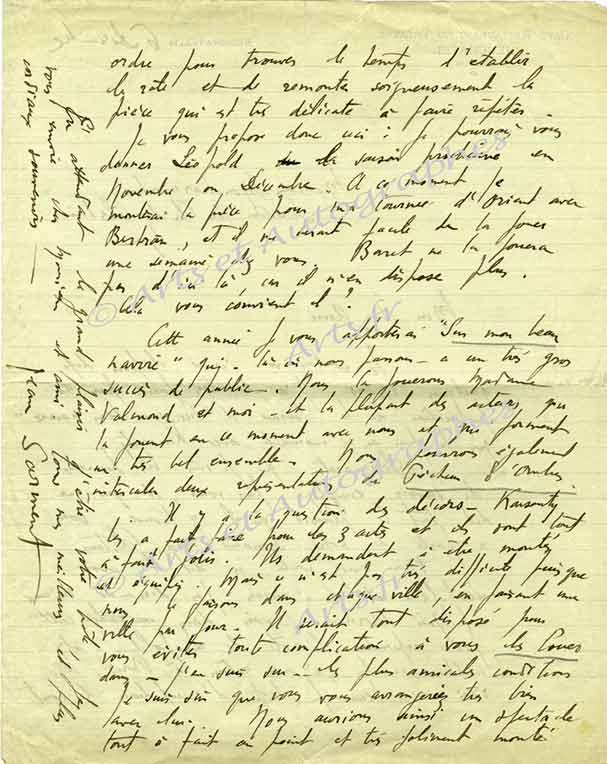 ordre pour trouver le temps d'établir
la
pièce qui est très délicate à faire répéter.
Je vous propose donc ceci : je pourrai vous
donner Léopold la saison prochaine en
Novembre ou Décembre. A ce moment je
monterai la pièce pour ma tournée d'Orient avec
et il me serait facile de la jouer
une semaine chez vous. Baret ne la jouera
pas d'ici là car il n'en dispose plus.
Cela vous convient-il ?
Cette année je vous apporterai "Sur mon beau
navire" qui - là où nous passons - a un très gros
succès de public. Nous la jouerons Madame
Valmond et moi - et la plupart des acteurs qui
la jouent en ce moment avec nous et qui forment
un très bel ensemble - Nous pourrons également
intercaler deux représentations de Pêcheur d'Ombres.
Il y a la question des décors - Karsenty
les a fait faire pour les 3 actes et ils sont tout
à fait jolis. Ils demandent à être montés
et équipés. Mais ce n'est pas très difficile puisque
nous le faisons dans chaque ville, en passant une
ville par jour. Il serait tout disposé pour
vous éviter toute complication à vous les louer
dans - j'en suis sûr - les plus amicales conditions
Je suis sûr que vous vous arrangeriez très bien
avec lui. Nous aurions ainsi un spectacle
tout à fait au point et très joliment monté
En attendant le grand plaisir d'être votre hôte
vous envoie cher et ami tous mes meilleurs et plus
cordiaux souvenirs
Jean Sarment
© Arts et Autographes
Arts.fr
© Arts et Autographes
Arts.fr